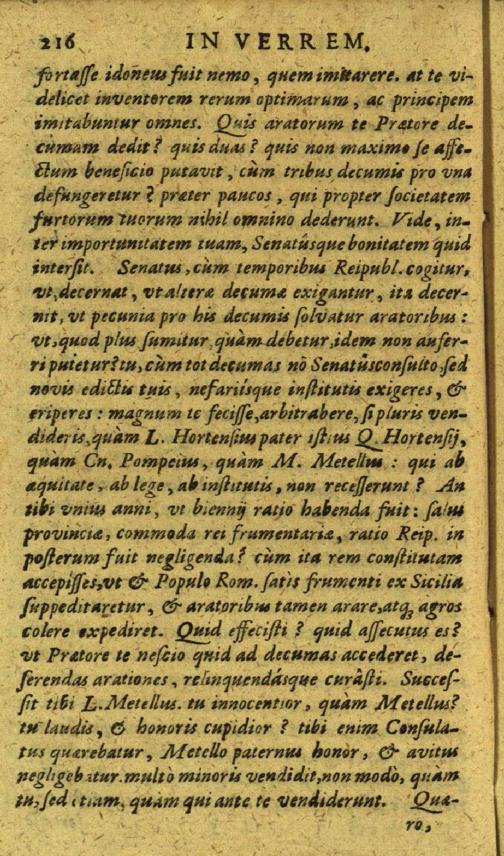 216 IN VERREM.
fortasse idoneus fuit nemo, quem imitarere. at te vi-
delicet inventorem rerum optimarum, ac principem
imitabuntur omnes. Quis aratorum te Prætore de-
cumam dedit? quis duas? quis non maximo se affe-
ctum beneficio putavit, cùm tribus decumis pro vna
defungeretur? præter paucos, qui propter societatem
furtorum tuorum nihil omnino dederunt. Vide, in-
ter importunitatem tuam, Senatûsque bonitatem quid
intersit. Senatus, cùm temporibus Reipubl. cogitur,
vt, decernat, vt alteræ decumæ exigantur, ita decer-
nit, vt pecunia pro his decumis solvatur aratoribus:
vt, quod plus sumitur, quàm debetur, idem non aufer-
ri putetur? tu, cùm tot decumas nõ Senatûsconsulto, sed
novis edictis tuis, nefariísque institutis exigeres, &
eriperes: magnum te fecisse, arbitrabere, si pluris ven-
dideris, quàm L. Hortensius pater istius Q. Hortensij,
quàm Cn. Pompeius, quàm M. Metellus: qui ab
æquitate, ab lege, ab institutis, non recesserunt? An
tibi vnius anni, vt biennij ratio habenda fuit: salus
provinciæ, commoda rei frumentariæ, ratio Reip. in
posterum fuit negligenda? cùm ita rem constitutam
accepisses, vt & Populo Rom. satis frumenti ex Sicilia
suppeditaretur, & aratoribus tamen arare, atq; agros
colere expediret. Quid effecisti? quid assecutus es?
vt Prætore te nescio quid ad decumas accederet, de-
serendas arationes, relinquendásque curâsti. Succes-
sit tibi L. Metellus. tu innocentior, quàm Metellus?
tu laudis, & honoris cupidior? tibi enim Consula-
tus quærebatur, Metello paternus honor, & avitus
negligebatur. multò minoris vendidit, non modò, quàm
tu, sed etiam, quàm qui ante te vendiderunt. Quæ-
ro,